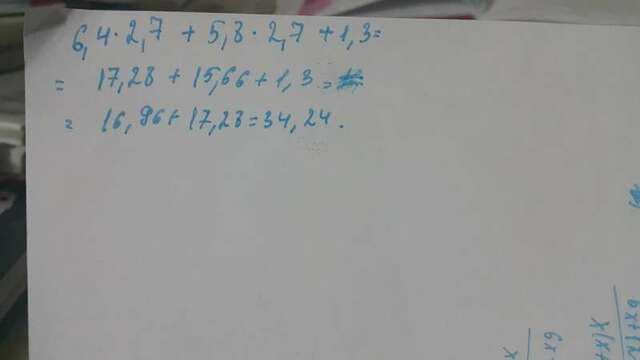 6,4·2,7 + 5,8·2,7 + 1,3=
= 17,28 + 15,66 + 1,3 =
= 16,96 + 17,28 = 34,24.